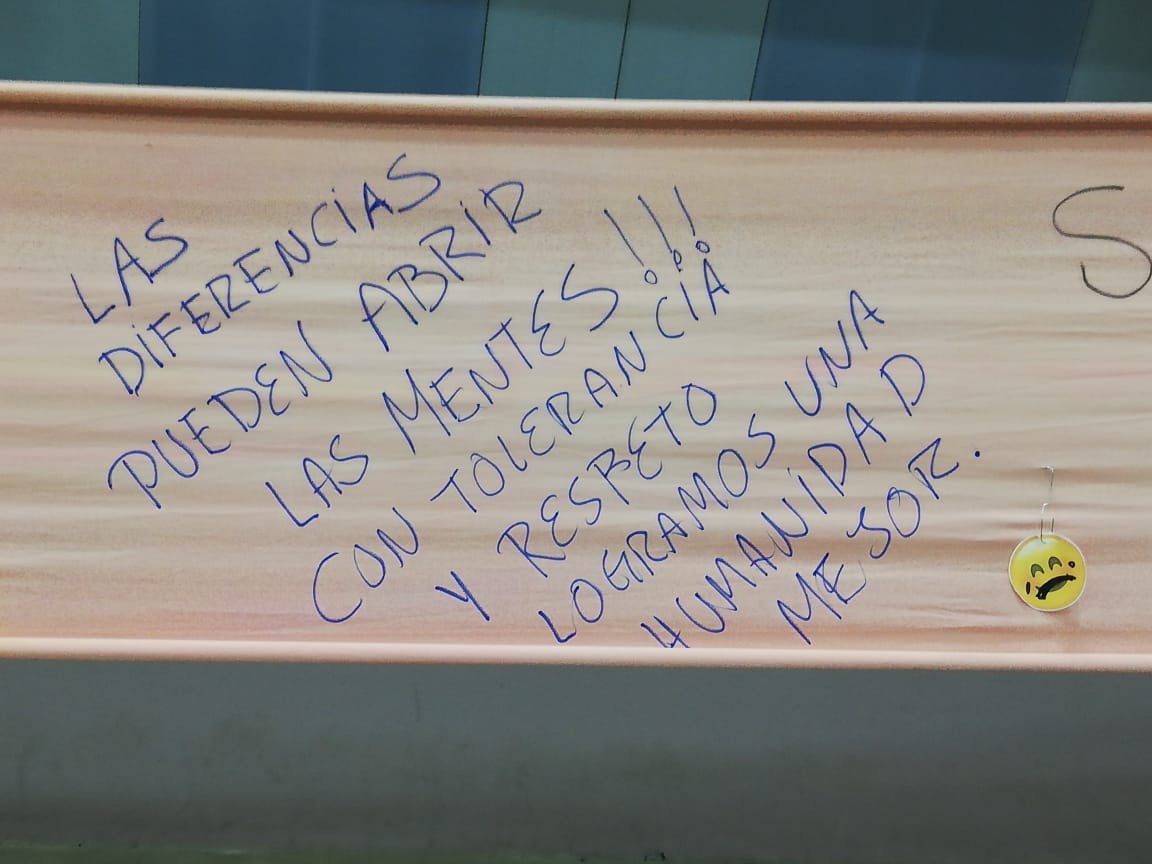 LAS
DIFERENCIAS
PUEDEN ABRIR
LAS MENTES!!!
CON TOLERANCIA
Y RESPETO
LOGRAMOS UNA
HUMANIDAD
MEJOR.
S